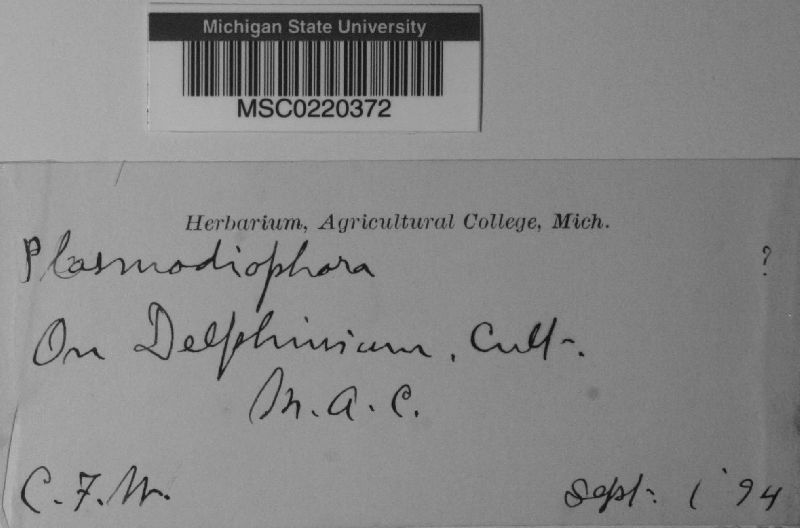 Michigan State University
MSC0220372
Herbarium, Agricultural College, Mich.
Plasmodiophora ?
On Delphinium, Cult.
M.A.C.
C.F.W. Sept. 1 '94